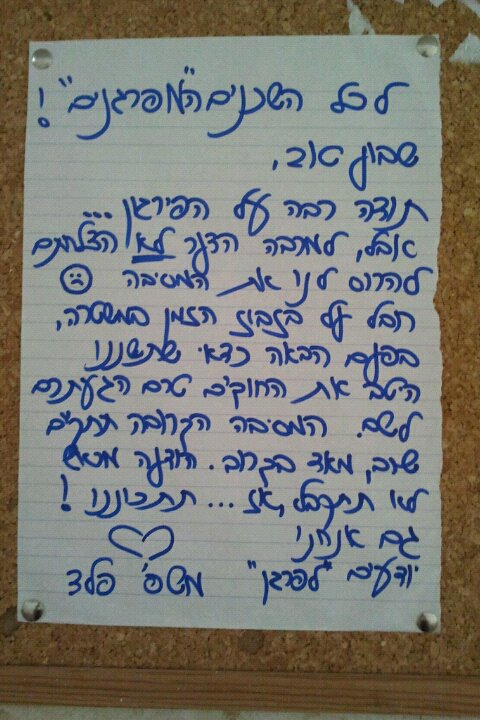 לכל השכנים ה"מפרגנים"!
שבוע טוב,
תודה רבה על הפירגון...
אבל, למרבה הצער לא הצלחתם
להרוס לנו את המסיבה ☹
חבל על בזבוז הזמן במשטרה,
בפעם הבאה כדאי שתשננו
היטב את החוקים טרם הגעתכם
לשם. המסיבה הקרובה תתקיים
שוב, מאוד בקרוב. הודעה
לא תתקבל, אז... תתכוננו!
גם אנחנו
יודעים "לפרגן" ♡ משפ' פלד